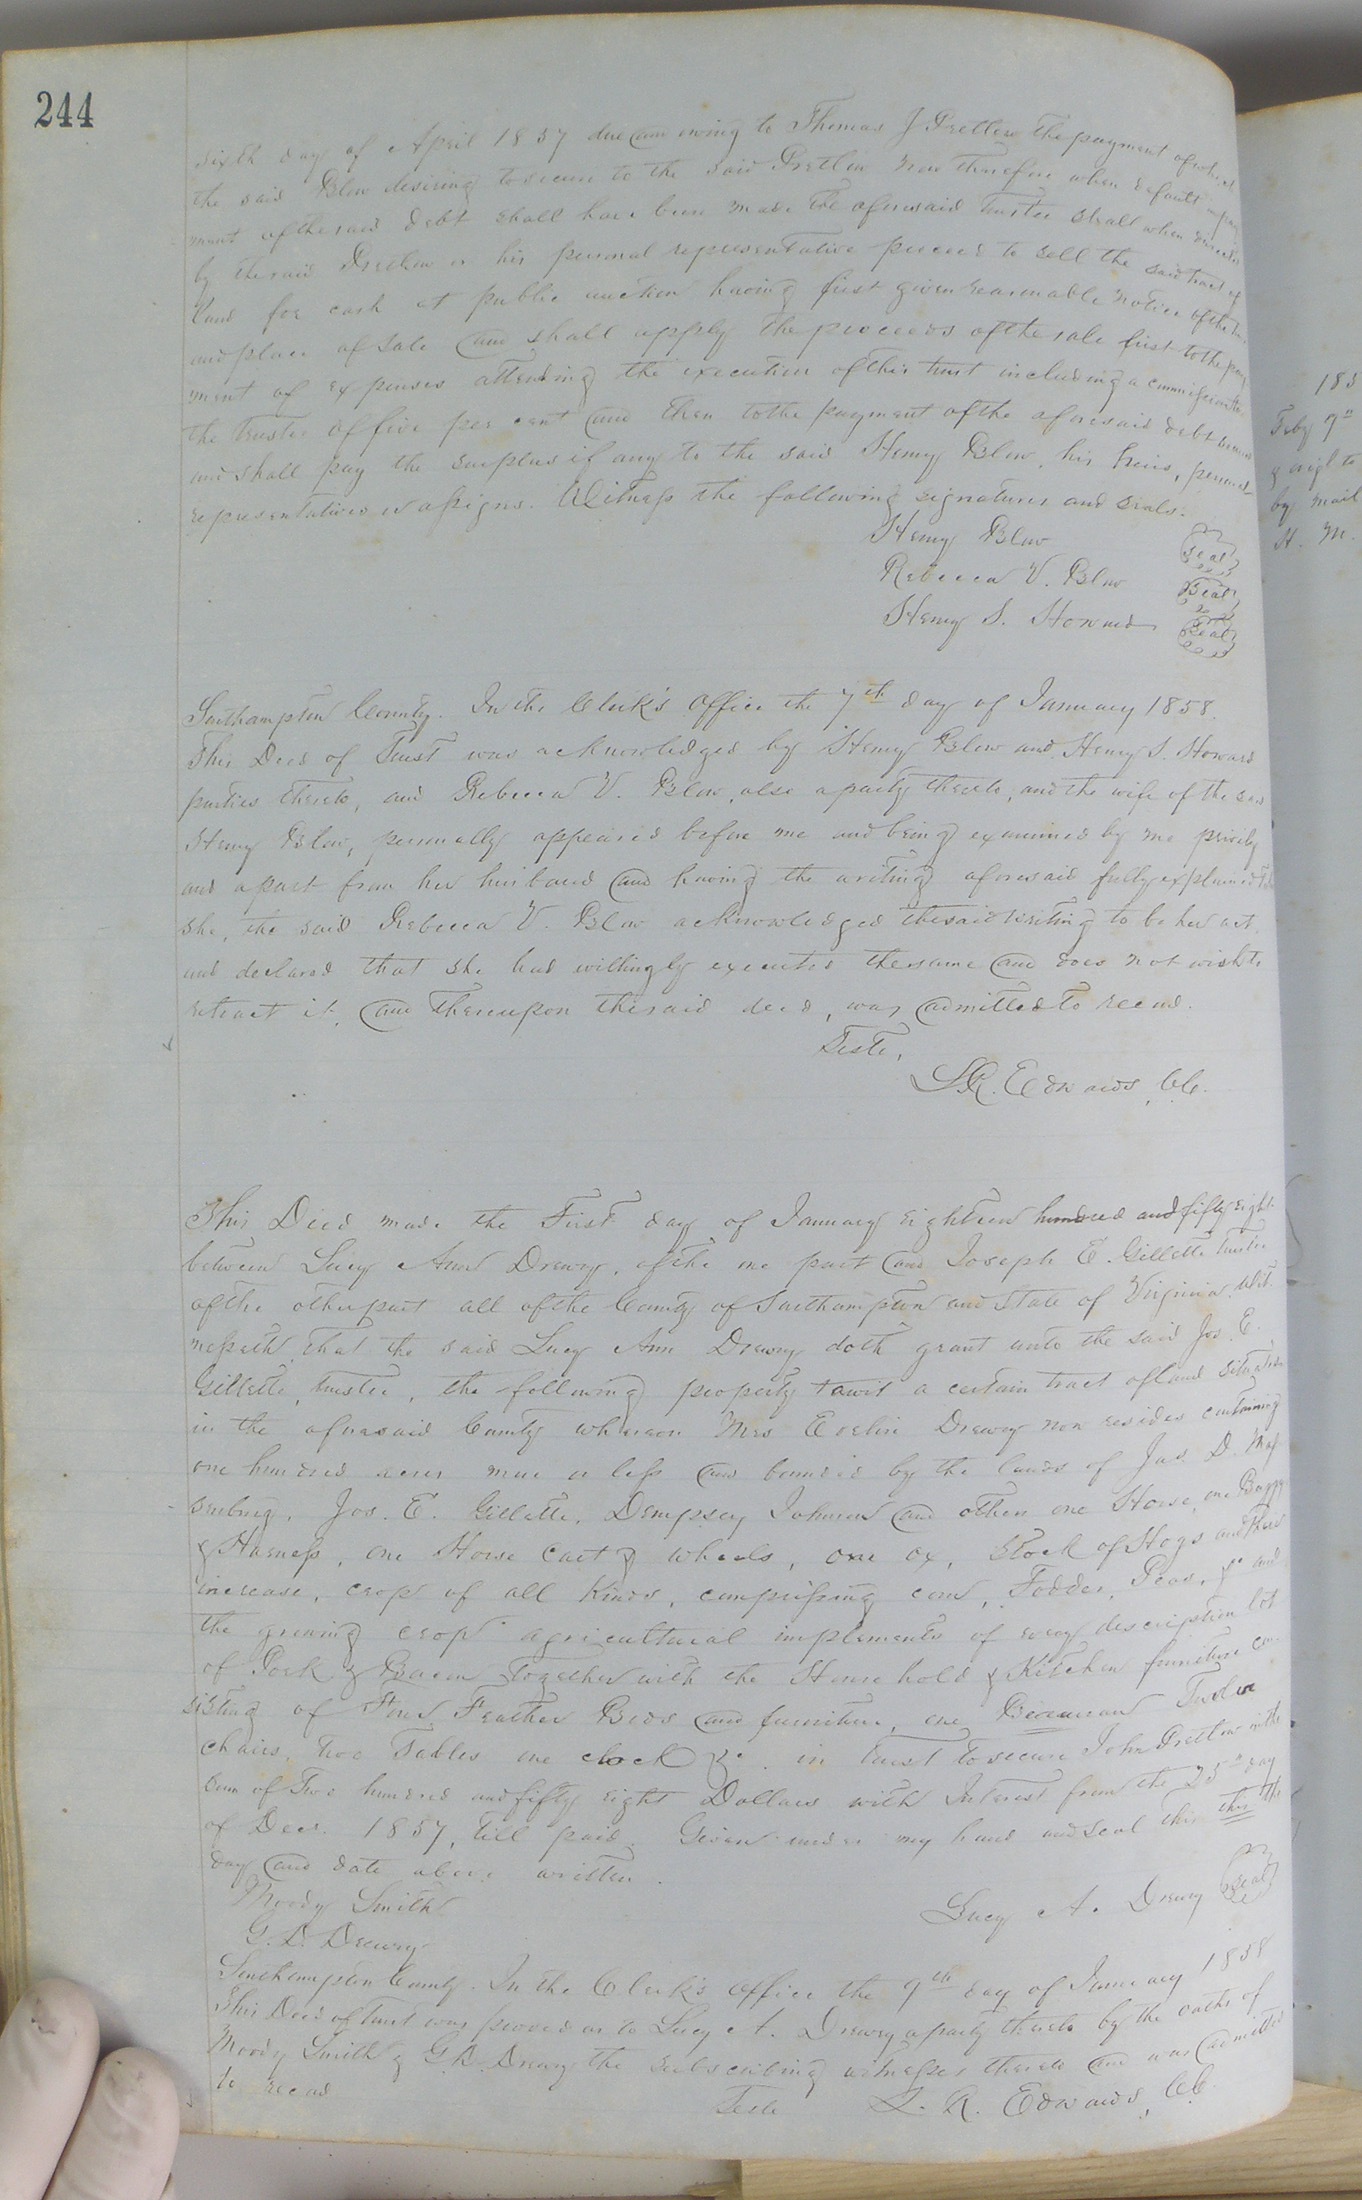 244
sixth day of April 1857 due and owing to Thomas J Pretlow the payment of which
the said Blow desiring to secure to the said Pretlow Now therefore when default in pay
ment of the said debt shall have been made the aforesaid Trustee shall when directed
by the said Pretlow or his personal representative proceed to sell the said tract of
land for cash at public auction having first given reasonable notice of the time
and place of sale and shall apply the proceeds of the sale first to the pay
ment of expenses attending the execution of this trust including a commission to
the Trustee of five per cent and then to the payment of the aforesaid debt
and shall pay the surplus if any to the said Henry Blow, his heirs, personal
representatives or assigns. Witness the following signatures and seals.
Henry Blow Seal
Rebecca V. Blow Seal
Henry S. Howard Seal
Southampton County. In the Clerk's Office the 7th day of January 1858.
This Deed of Trust was acknowledged by Henry Blow and Henry S. Howard
parties thereto, and Rebecca V. Blow, also a party thereto, and the wife of the said
Henry Blow, personally appeared before me and being examined by me privily
and apart from her husband and having the writing aforesaid fully explained to her
she, the said Rebecca V. Blow acknowledged the said writing to be her act,
and declared that she had willingly executed the same and does not wish to
retract it, and thereupon the said deed, was admitted to record.
Teste,
L.R. Edwards, CC.
This Deed made the First day of January eighteen hundred and fifty eight
between Lucy Ann Drewry, of the one part and Joseph E. Gillette Trustee
of the other part all of the County of Southampton and State of Virginia. Wit-
nesseth, that the said Lucy Ann Drewry doth grant unto the said Jos. E.
Gillette, trustee, the following property towit a certain tract of land situated
in the aforesaid County whereon Mrs Evelin Drewry now resides containing
one hundred acres more or less and bounded by the lands of Jas. D. Mas
senburg, Jos. E. Gillette, Dempsey Johnson and others one Horse, one Buggy
& Harness, one Horse Cart & wheels, one ox, Stock of Hogs and their
increase, crop of all kinds, comprissing corn, Fodder, Peas, &c and
the growing crop agricultural implements of every description lot
of Pork & Bacon Together with the House hold & Kitchen furniture con
sisting of Four Feather Beds and furniture, one Beaureau Twelve
chairs, two Tables one clock &c. in trust to secure John Pretlow in the
sum of Two hundred and fifty eight Dollars with Interest from the 25th day
of Decr. 1857, till paid. Given under my hand and seal this the
day and date above written.
Moody Smith Lucy A. Drewry Seal
G. D. Drewry
Southampton County. In the Clerk's Office the 9th day of January 1858
This Deed of Trust was proved as to Lucy A. Drewry a party thereto by the oaths of
Moody Smith & G.D. Drewry the subscribing witnesses thereto and was admitted
to record
Teste L. R. Edwards, CC.
185
Feby 9th
& origl to
by mail
H. M.